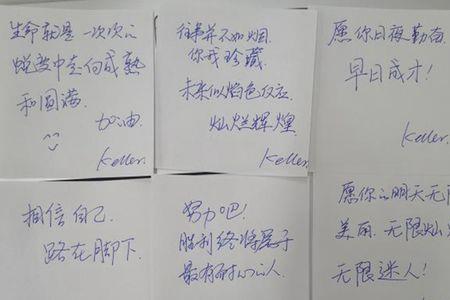 生命就是一次次的
蜕变中走向成熟
和圆满.
加油.
Keller.
往事并不如烟.
你我珍藏.
未来似焰色反应.
灿烂辉煌.
Keller.
愿你日夜勤奋.
早日成才!
Keller.
相信自己.
路在脚下.
努力吧!
胜利终将属于
最有耐心的人.
愿你的明天无
美丽.无限灿
无限迷人!